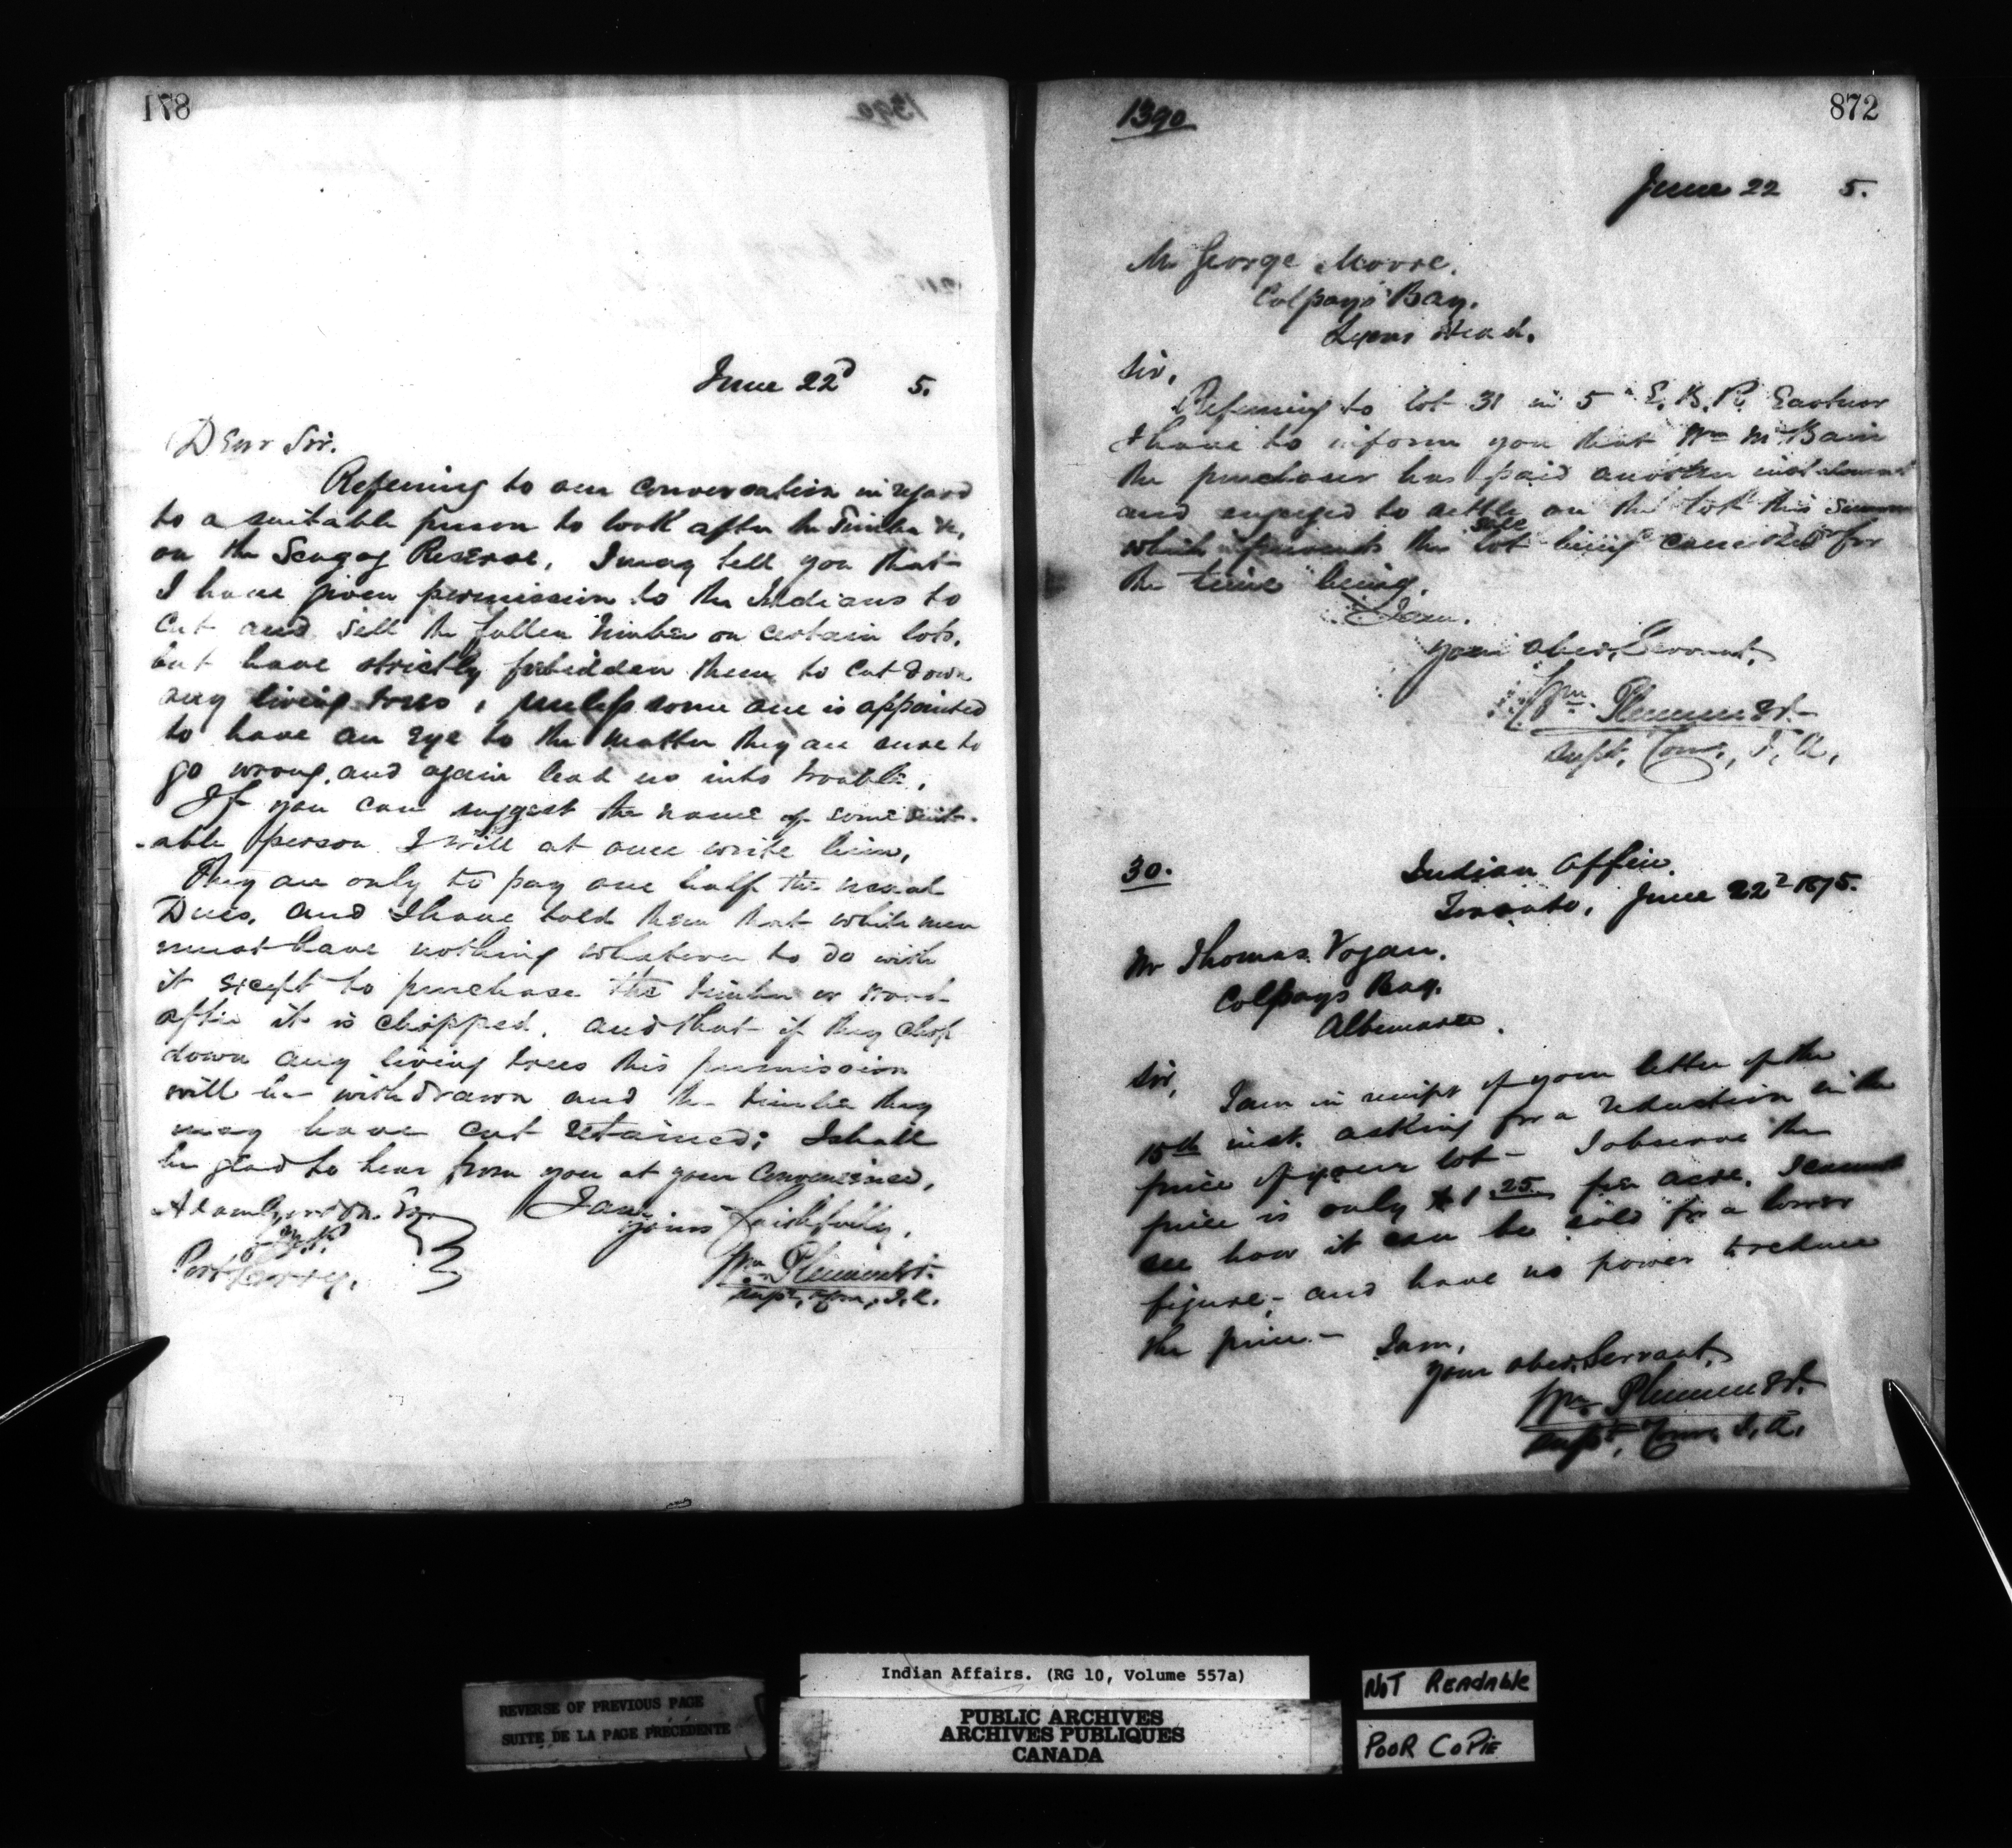 871
June 22d 5.
Dear Sir.
Refering to our conversation in regard
to a suitable person to look after the Timber &c,
on the Scugog Reserve, I may tell you that
I have given permission to the Indians to
cut and sell the fallen timber on certain lots,
but have strictly forbidden them to cut down
any living trees, unless some one is appointed
to have an eye to the matter they are sure to
go wrong, and again lead us into trouble.
If you can suggest the name of some suit-
-able person I will at once write him,
They are only to pay one half the usual
Dues, and I have told them that white men
must have nothing whatever to do with
it except to purchase the timber or wood
after it is chopped, and that if they chop
down any living trees this permission
will be withdrawn and the timber they
may have cut retained; I shall
be glad to hear from you at your convenience,
I am
yours faithfully,
Wm Plummer
Supt, Com, I.A.
Adam Gordon Esq
Port Perry,
1390
872
June 22 5.
Mr George Moore,
Colpoys Bay,
Lyons Head.
Sir,
Refering to lot 31 in 5 E. B. R. Eastnor
I have to inform you that Wm McBain
the purchaser has paid another instalment
and engaged to settle on the lot this summer
which prevents the sale lot being cancelled for
the time being.
I am.
your obed. Servant,
Wm Plummer
Supt. Com, I, A,
30.
Indian Office,
Toronto, June 22d 1875.
Mr Thomas Vogan,
Colpoys Bay,
Albemarle.
Sir,
I am in receipt of your letter of the
15th inst. asking for a reduction in the
price of your lot - I observe the
price is only $1.25 per acre. I cannot
see how it can be sold for a lower
figure, and have no power to reduce
the price. -
I am,
your obed. Servant,
Wm Plummer
Supt, Com, I, A,
REVERSE OF PREVIOUS PAGE
SUITE DE LA PAGE PRÉCÉDENTE
Indian Affairs. (RG 10, Volume 557a)
PUBLIC ARCHIVES
ARCHIVES PUBLIQUES
CANADA
NOT READABLE
POOR COPIE